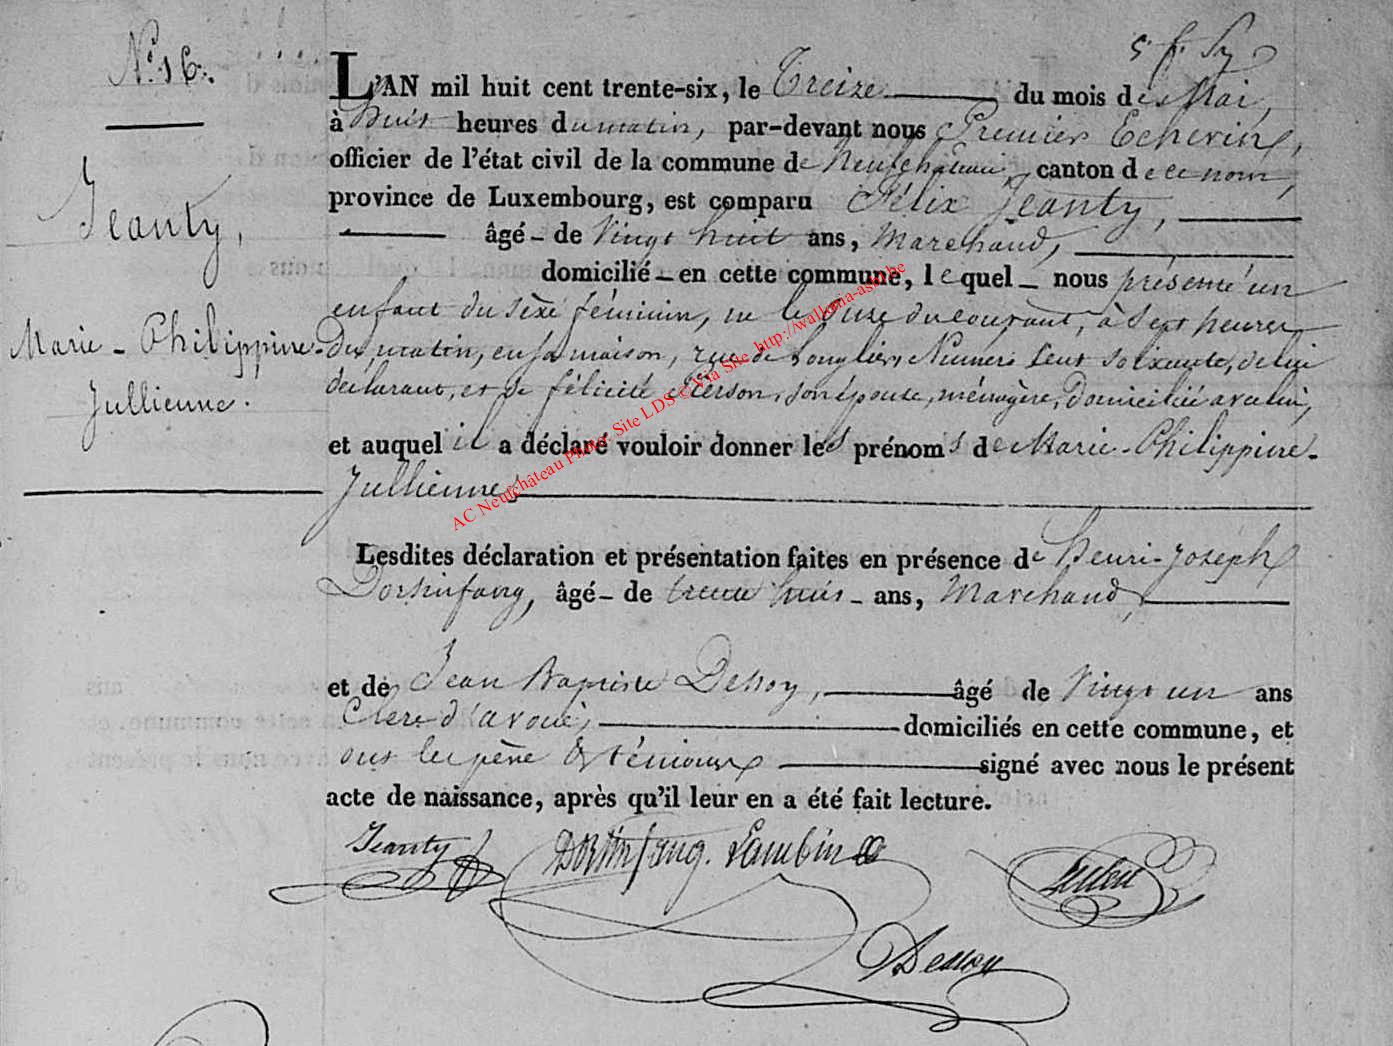 N° 16.
L'AN mil huit cent trente-six, le Treize du mois de Mai,
à Huit heures du matin, par-devant nous Premier Echevin,
officier de l'état civil de la commune de Neufchâteau canton de ce nom,
province de Luxembourg, est comparu Félix Jeanty,
âgé - de Vingt huit ans, Marchand,
domicilié - en cette commune, lequel - nous présenté un
enfant du sexe féminin, né le onze du courant, à Sept heures
Du matin, en sa maison, rue de Longlier, Numero Cent soixante, de lui
declarant, et de félicité Pierson, son épouse, ménagère, Domiciliée avec lui,
et auquel il a déclaré vouloir donner les prénoms de Marie - Philippine -
Jullienne,
Jeanty,
Marie - Philippine -
Jullienne.
Lesdites déclaration et présentation faites en présence de Henri-Joseph
Dorsinfang, âgé - de trente huit - ans, Marchand,
et de Jean Baptiste Dessoy, âgé de Vingt un ans
Clerc d'avoué, domiciliés en cette commune, et
ont les père & témoins signé avec nous le présent
acte de naissance, après qu'il leur en a été fait lecture.
Jeanty Dorsinfang. Lambin
Dessoy
AC Neufchâteau Photo: Site LDS et Via Site http://wallonia-asbl.be